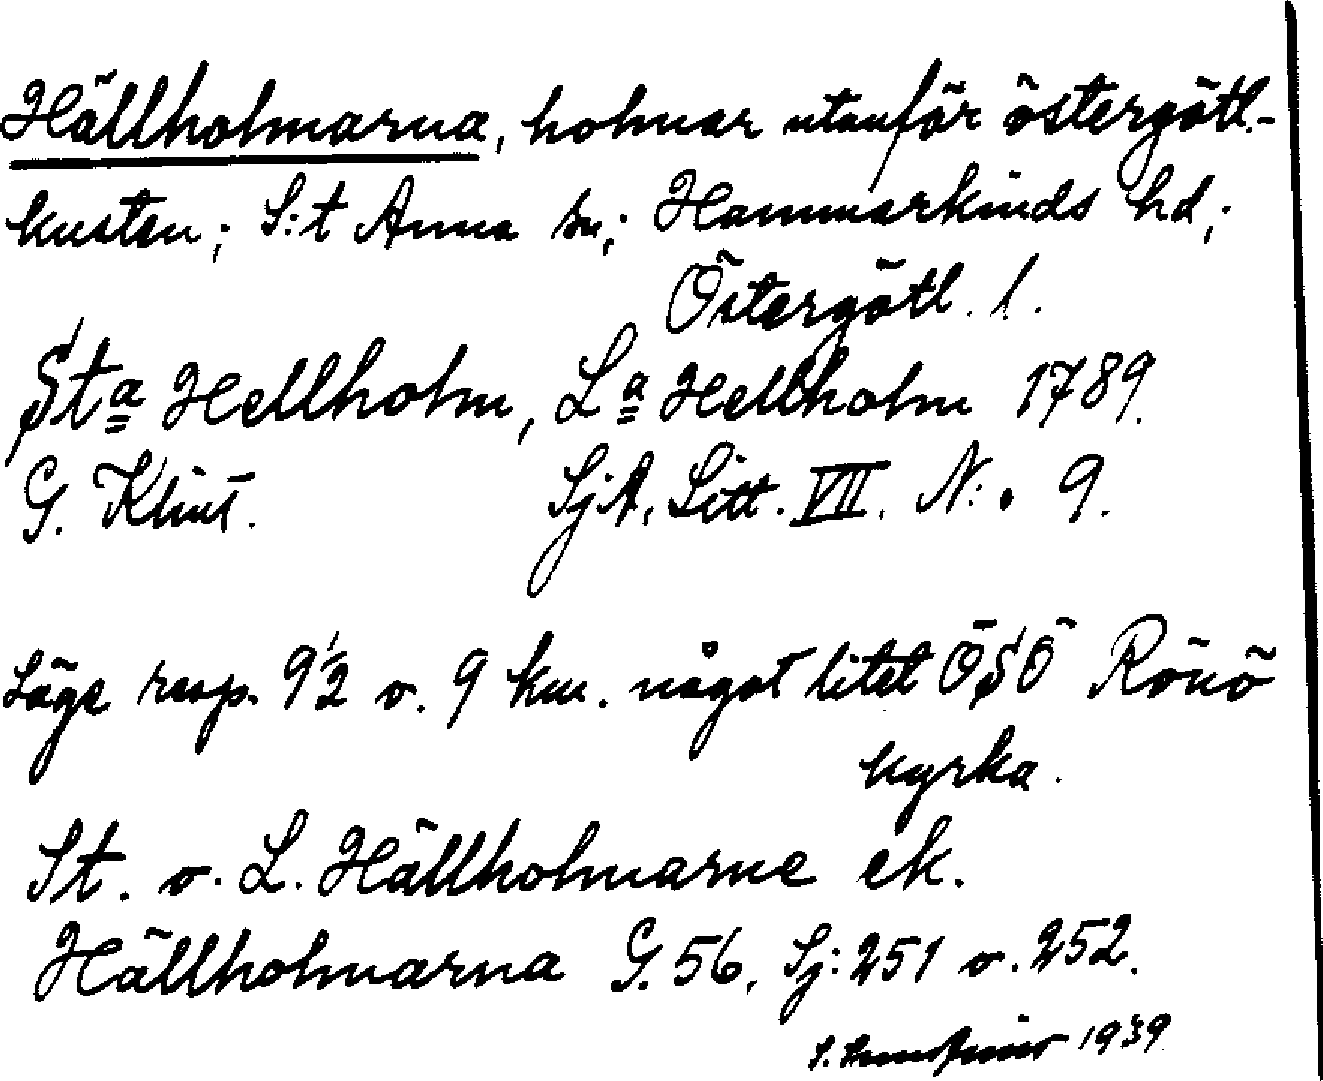 Hällholmarna, holmar utanför östergötl.-
kusten; S:t Anna sn; Hammarkinds hd;
Östergötl. l.
Sta Hellholm, La Hellholm 1789.
G. Klint. SjA. Litt. VII. N:o 9.
Läge resp. 9½ o. 9 km. något litet ÖSÖ Rönö
kyrka.
St. o. L. Hällholmarne ek.
Hällholmarna G. 56, Sj: 251 o. 252.
1939